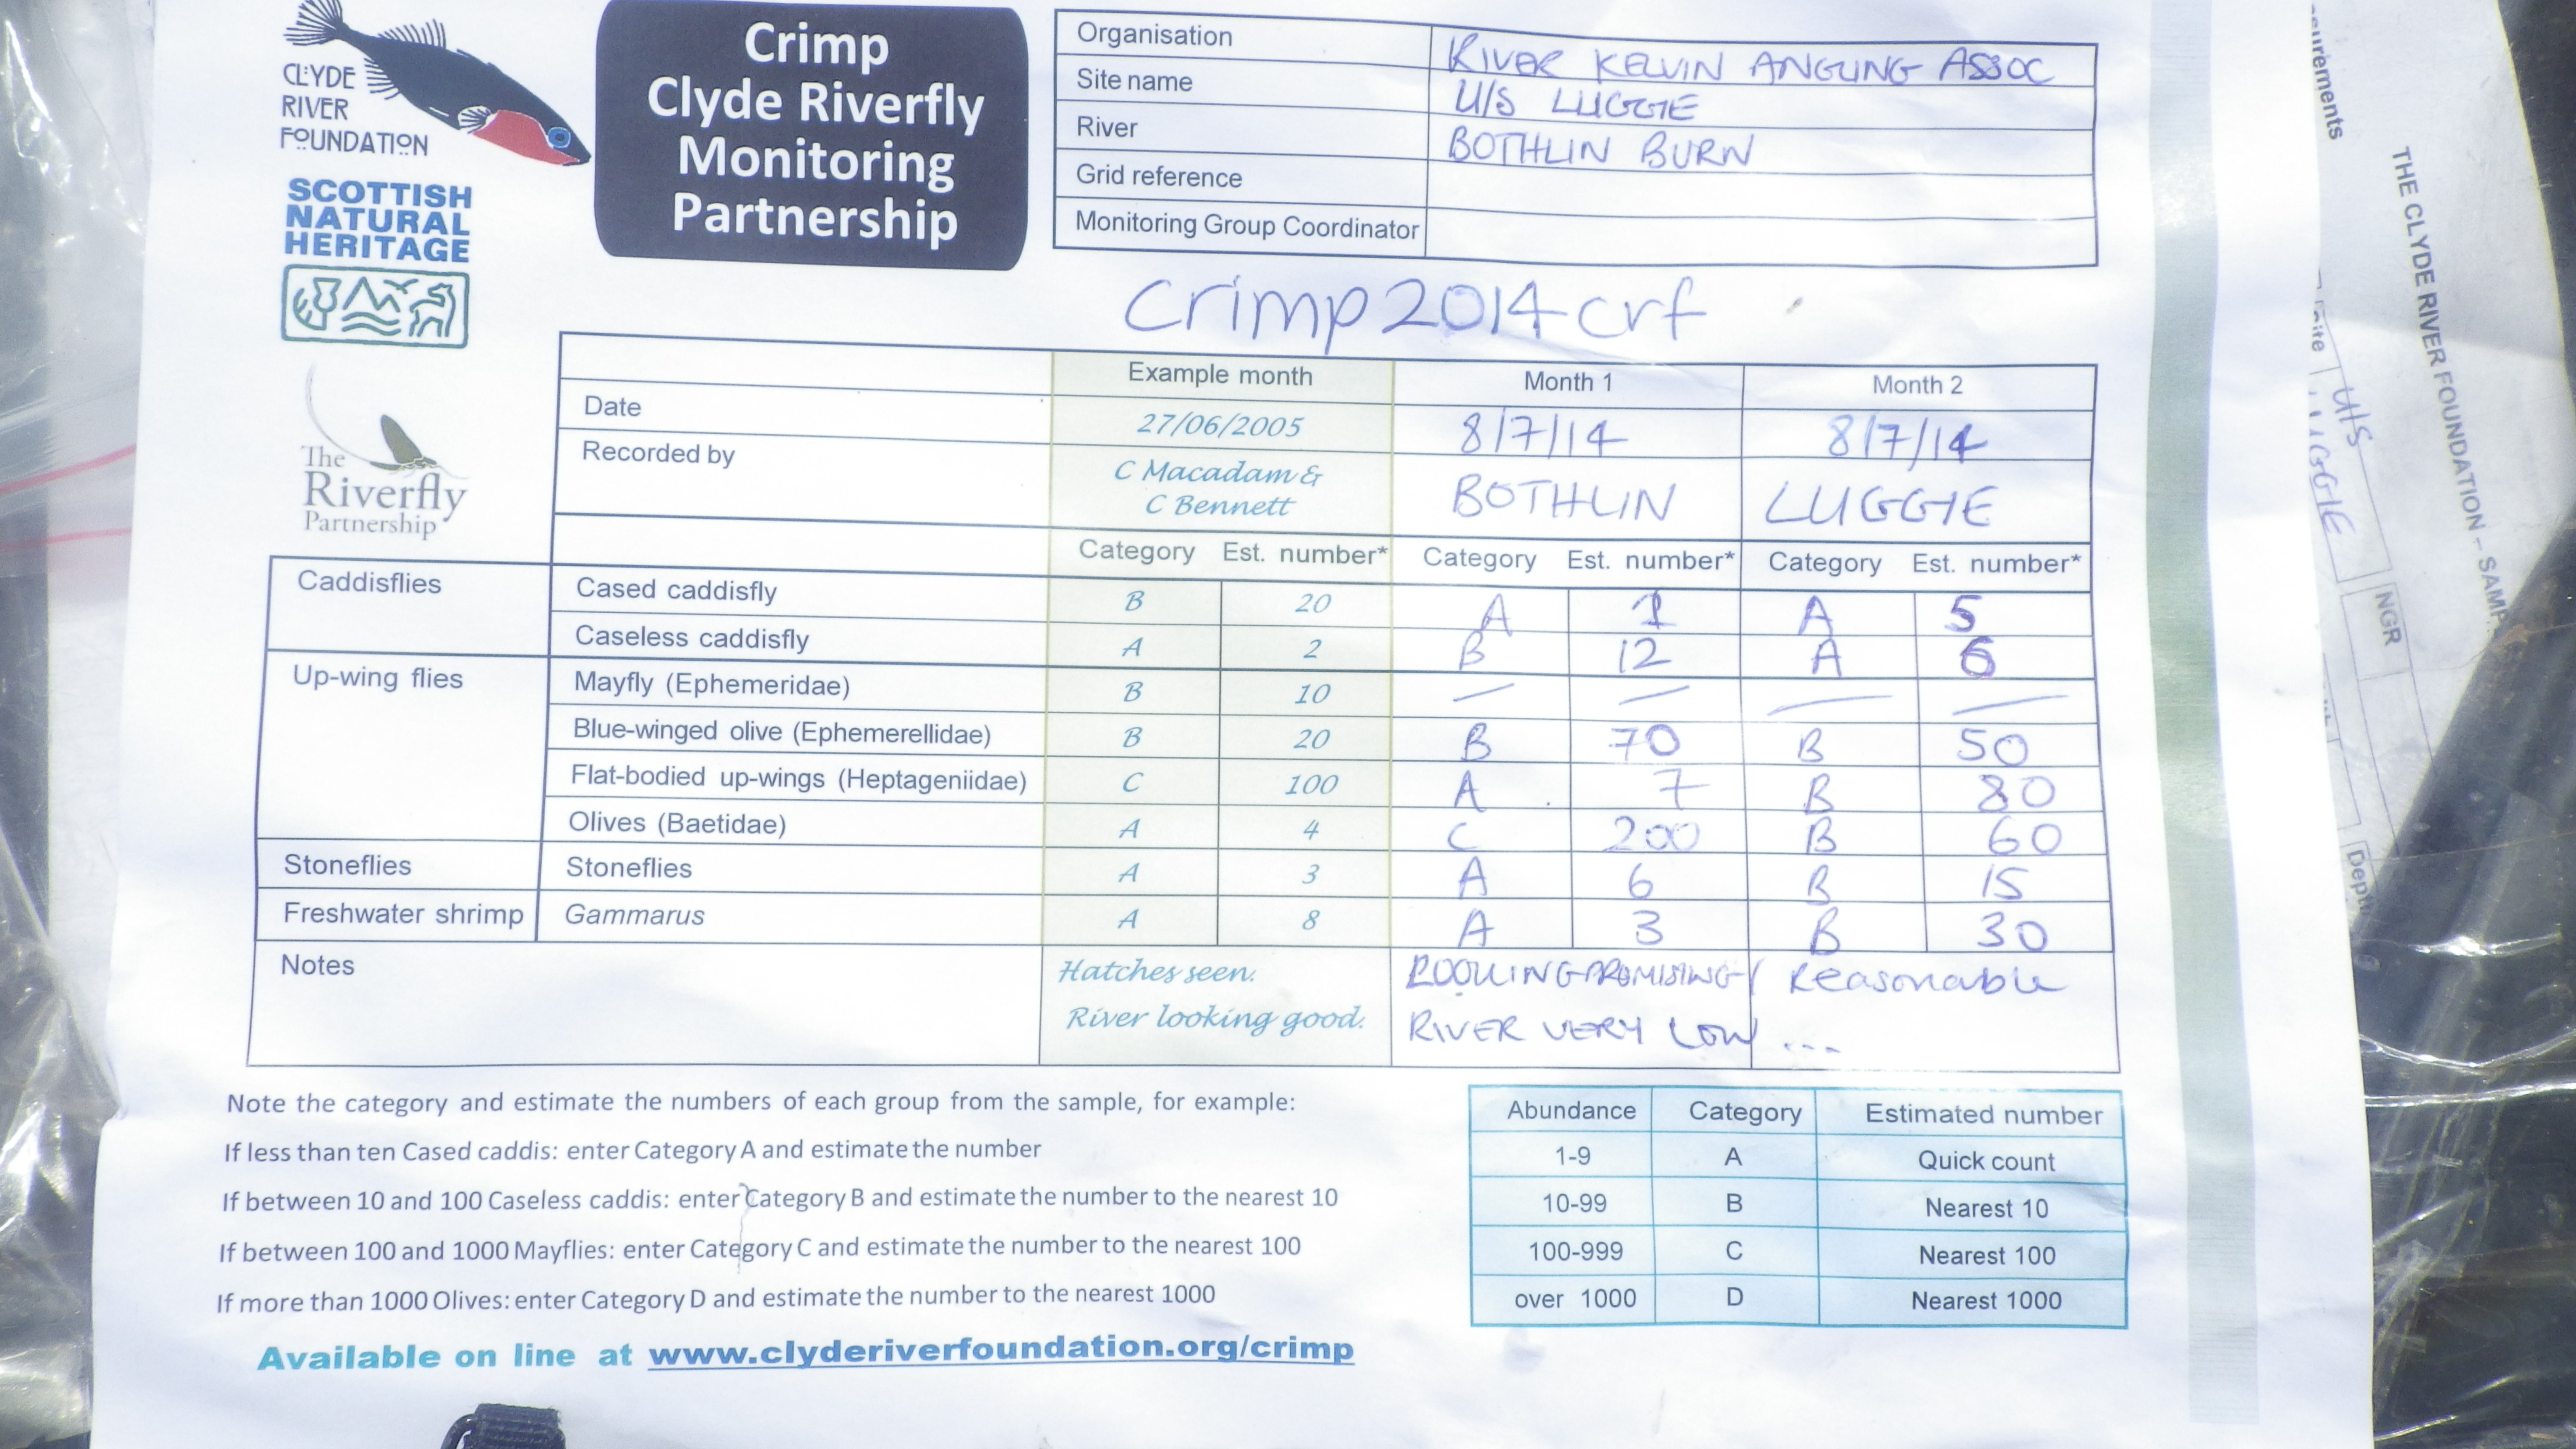 CLYDE
RIVER
FOUNDATION
SCOTTISH
NATURAL
HERITAGE
The
Riverfly
Partnership
Crimp
Clyde Riverfly
Monitoring
Partnership
Organisation RIVER KELVIN ANGLING ASSOC
Site name U/S LUGGIE
River BOTHLIN BURN
Grid reference
Monitoring Group Coordinator
Crimp2014crf
Example month Month 1 Month 2
Date 27/06/2005 8/7/14 8/7/14
Recorded by C Macadam & C Bennett BOTHLIN LUGGIE
Category Est. number* Category Est. number* Category Est. number*
Caddisflies Cased caddisfly B 20 A 1 A 5
Caseless caddisfly A 2 B 12 A 6
Up-wing flies Mayfly (Ephemeridae) B 10 — — — —
Blue-winged olive (Ephemerellidae) B 20 B 70 B 50
Flat-bodied up-wings (Heptageniidae) C 100 A 7 B 80
Olives (Baetidae) A 4 C 200 B 60
Stoneflies Stoneflies A 3 A 6 B 15
Freshwater shrimp Gammarus A 8 A 3 B 30
Notes Hatches seen. LOOKING PROMISING / Reasonable
River looking good. RIVER VERY LOW ...
Note the category and estimate the numbers of each group from the sample, for example:
If less than ten Cased caddis: enter Category A and estimate the number
If between 10 and 100 Caseless caddis: enter Category B and estimate the number to the nearest 10
If between 100 and 1000 Mayflies: enter Category C and estimate the number to the nearest 100
If more than 1000 Olives: enter Category D and estimate the number to the nearest 1000
Available on line at www.clyderiverfoundation.org/crimp
Abundance Category Estimated number
1-9 A Quick count
10-99 B Nearest 10
100-999 C Nearest 100
over 1000 D Nearest 1000
THE CLYDE RIVER FOUNDATION – SAMP
urements
U/S
LUGGIE
NGR
Depth